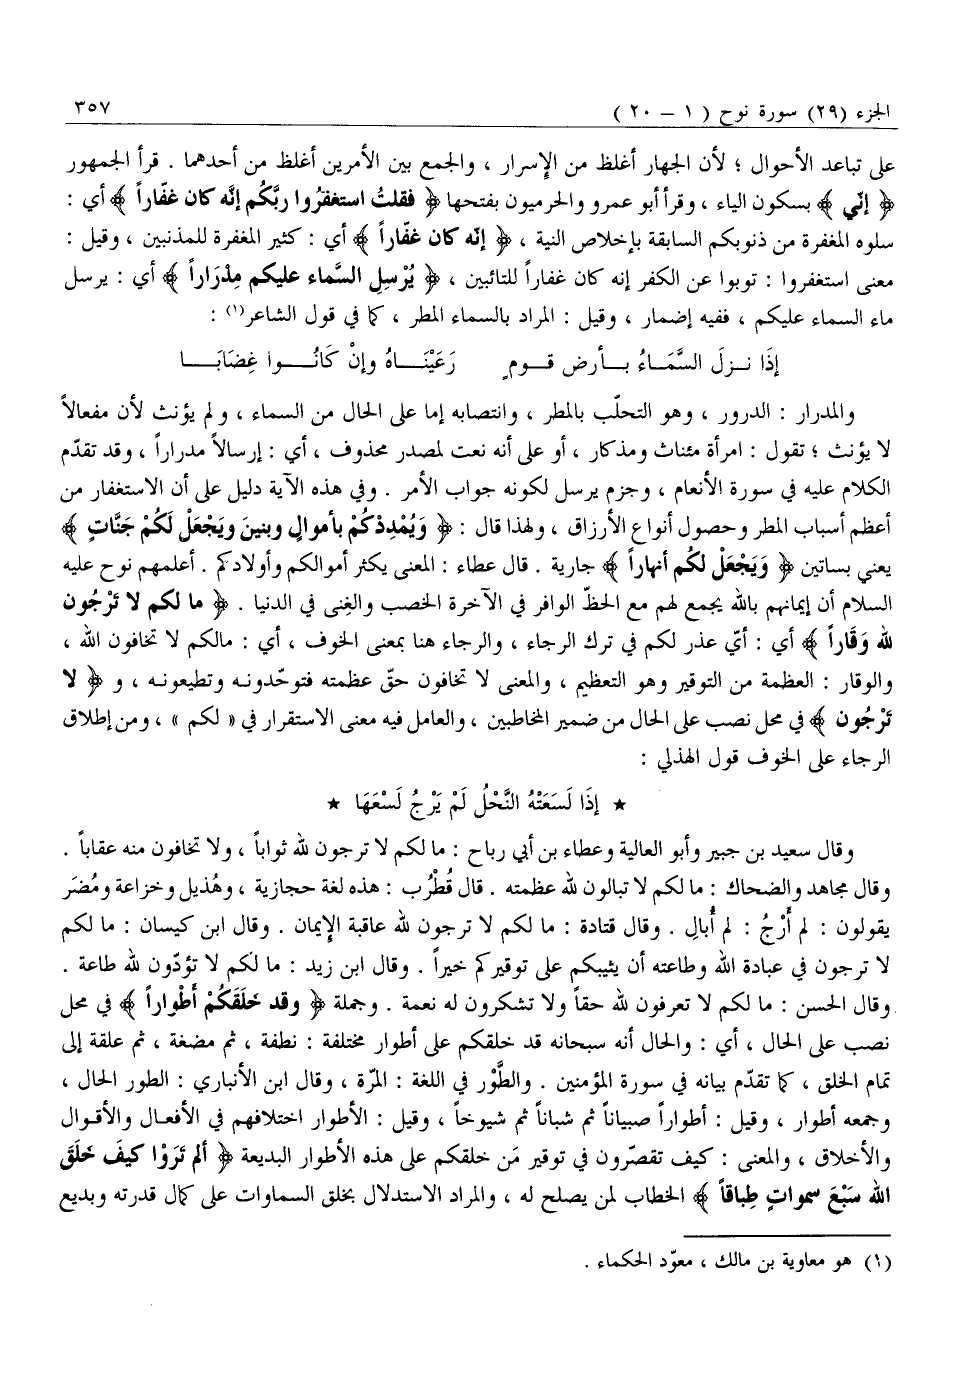 الجزء (٢٩) سورة نوح ( ١ – ٢٠ ) ٣٥٧
على تباعد الأحوال ؛ لأن الجهار أغلظ من الإسرار ، والجمع بين الأمرين أغلظ من أحدهما . قرأ الجمهور
﴿ إنّي ﴾ بسكون الياء ، وقرأ أبو عمرو والحرميون بفتحها ﴿ فقلتُ استغفرُوا ربَّكُم إنَّه كان غفّاراً ﴾ أي :
سلوه المغفرة من ذنوبكم السابقة بإخلاص النية ، ﴿ إنّه كان غفّاراً ﴾ أي : كثير المغفرة للمذنبين ، وقيل :
معنى استغفروا : توبوا عن الكفر إنه كان غفاراً للتائبين ، ﴿ يُرْسِلِ السَّماء عليكم مِدْرَاراً ﴾ أي : يرسل
ماء السماء عليكم ، ففيه إضمار ، وقيل : المراد بالسماء المطر ، كما في قول الشاعر(١) :
إذَا نـزلَ السَّمَـاءُ بـأرض قـومٍ رَعَيْنَـاهُ وإنْ كَانُـوا غِضَابَـا
والمدرار : الدرور ، وهو التحلّب بالمطر ، وانتصابه إما على الحال من السماء ، ولم يؤنث لأن مفعالاً
لا يؤنث ؛ تقول : امرأة مئناث ومذكار ، أو على أنه نعت لمصدر محذوف ، أي : إرسالاً مدراراً ، وقد تقدّم
الكلام عليه في سورة الأنعام ، وجزم يرسل لكونه جواب الأمر . وفي هذه الآية دليل على أن الاستغفار من
أعظم أسباب المطر وحصول أنواع الأرزاق ، ولهذا قال : ﴿ وَيُمْدِدْكُمْ بأموالٍ وبنينَ ويَجْعَلْ لَكُمْ جَنَّاتٍ ﴾
يعني بساتين ﴿ وَيَجْعَلْ لكُم أنهاراً ﴾ جارية . قال عطاء : المعنى يكثر أموالكم وأولادكم . أعلمهم نوح عليه
السلام أن إيمانهم بالله يجمع لهم مع الحظّ الوافر في الآخرة الخصب والغِنى في الدنيا . ﴿ ما لكم لا تَرْجُون
لله وَقَاراً ﴾ أي : أيّ عذر لكم في ترك الرجاء ، والرجاء هنا بمعنى الخوف ، أي : مالكم لا تخافون الله ،
والوقار : العظمة من التوقير وهو التعظيم ، والمعنى لا تخافون حقّ عظمته فتوحّدونـه وتطيعونـه ، و ﴿ لا
تَرْجُون ﴾ في محل نصب على الحال من ضمير المخاطبين ، والعامل فيه معنى الاستقرار في « لكم » ، ومن إطلاق
الرجاء على الخوف قول الهذلي :
★ إذَا لَسَعَتْهُ النَّحْلُ لَمْ يَرْجُ لَسْعَهَا ★
وقال سعيد بن جبير وأبو العالية وعطاء بن أبي رباح : ما لكم لا ترجون لله ثواباً ، ولا تخافون منه عقاباً .
وقال مجاهد والضحاك : ما لكم لا تبالون لله عظمته . قال قُطْرُب : هذه لغة حجازية ، وهُذيل وخزاعة ومُضَر
يقولون : لم أَرْجُ : لم أُبالِ . وقال قتادة : ما لكم لا ترجون لله عاقبة الإيمان . وقال ابن كيسان : ما لكم
لا ترجون في عبادة الله وطاعته أن يثيبكم على توقيركم خيراً . وقال ابن زيد : ما لكم لا تؤدّون لله طاعة .
وقال الحسن : ما لكم لا تعرفون لله حقاً ولا تشكرون له نعمة . وجملة ﴿ وقد خَلَقَكُمْ أَطْواراً ﴾ في محل
نصب على الحال ، أي : والحال أنه سبحانه قد خلقكم على أطوار مختلفة : نطفة ، ثم مضغة ، ثم علقة إلى
تمام الخلق ، كما تقدّم بيانه في سورة المؤمنين . والطَّوْر في اللغة : المرّة ، وقال ابن الأنباري : الطور الحال ،
وجمعه أطوار ، وقيل : أطواراً صبياناً ثم شباناً ثم شيوخاً ، وقيل : الأطوار اختلافهم في الأفعـال والأقـوال
والأخلاق ، والمعنى : كيف تقصّرون في توقير مَن خلقكم على هذه الأطوار البديعة ﴿ ألم تَرَوْا كيفَ خَلَقَ
الله سَبْعَ سمواتٍ طِباقاً ﴾ الخطاب لمن يصلح له ، والمراد الاستدلال بخلق السماوات على كمال قدرته وبديع
(١) هو معاوية بن مالك ، معوّد الحكماء .